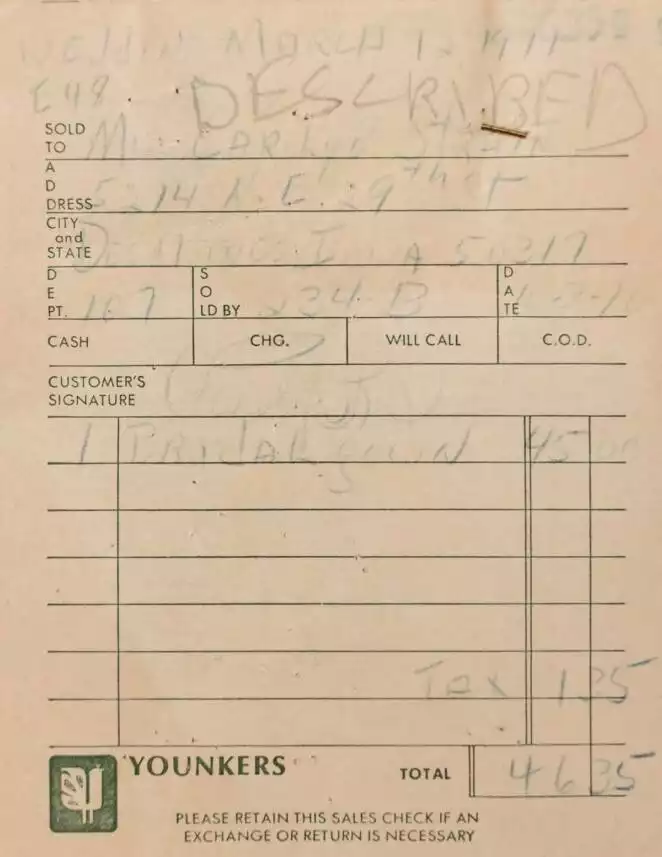 WEDDING MARCH 12 1971
E48. DESCRIBED
SOLD TO
ADDRESS 5214 N.E. 29th CT
CITY and STATE IOWA 50317
DEPT. 107 SOLD BY 234-B DATE
CASH CHG. WILL CALL C.O.D.
CUSTOMER'S SIGNATURE
1 BRIDAL gown 45 00
Tax 1 35
YOUNKERS TOTAL 46 35
PLEASE RETAIN THIS SALES CHECK IF AN
EXCHANGE OR RETURN IS NECESSARY